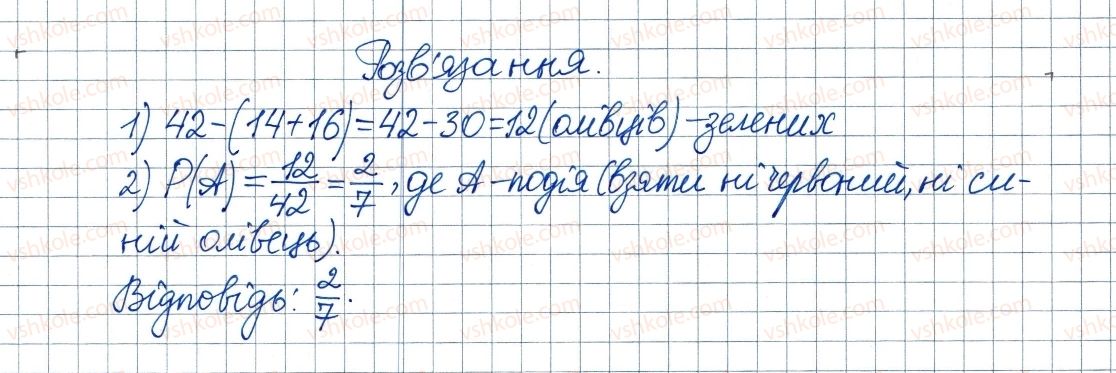 Розв'язання.
1) 42-(14+16)=42-30=12(олівців)-зелених
2) P(A)=12/42=2/7, де A-подія (взяти ні червоний, ні си-
ній олівець).
Відповідь: 2/7.